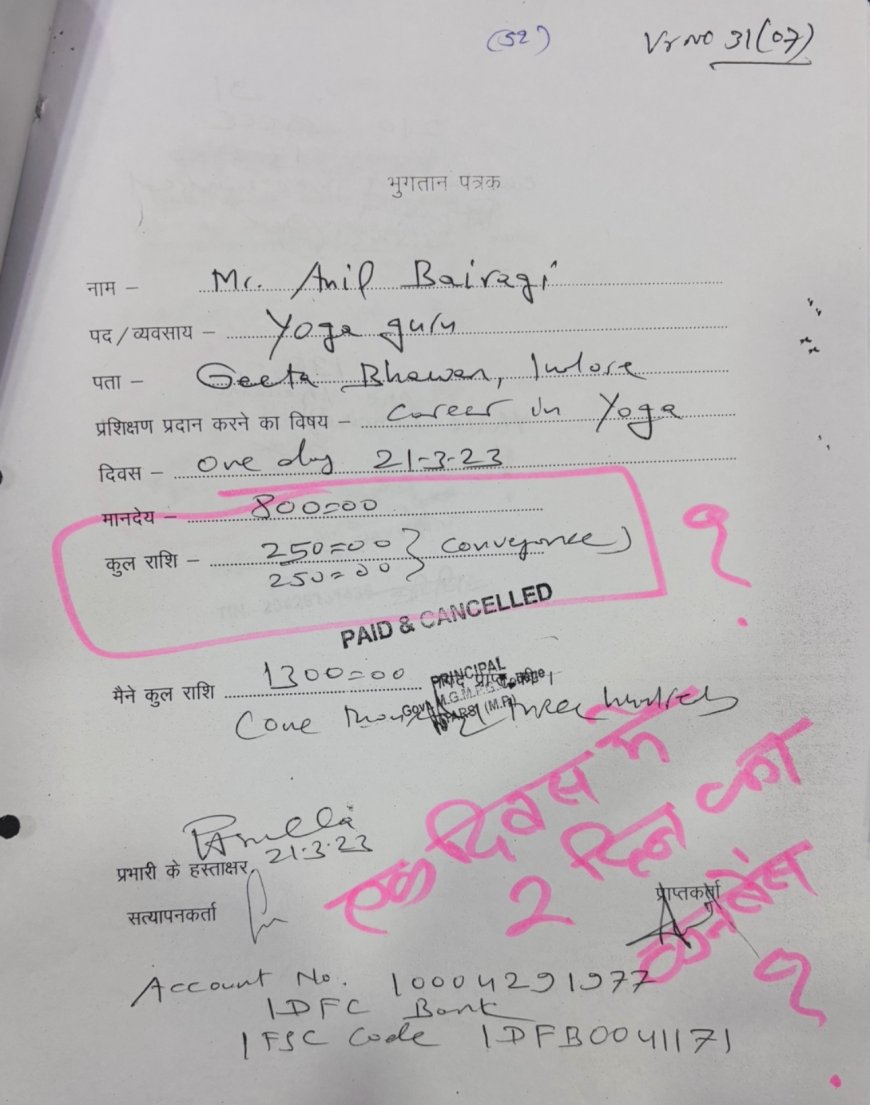 (52) Vr No 31(07)
भुगतान पत्रक
नाम – Mr. Anil Bairagi
पद / व्यवसाय – Yoga guru
पता – Geeta Bhawan, Indore
प्रशिक्षण प्रदान करने का विषय – Career in Yoga
दिवस – one day 21-3-23
मानदेय – 800=00
कुल राशि – 250=00 } conveyance)
250=00
?
PAID & CANCELLED
मैने कुल राशि 1300=00
PRINCIPAL
(M.P.)
(one three hundred
21.3.23
प्रभारी के हस्ताक्षर
सत्यापनकर्ता
प्राप्तकर्ता
एक दिवस में
2 दिन का
कनबेंस
?
Account No. 10004291977
IDFC Bank
IFSC Code IDFB0041171